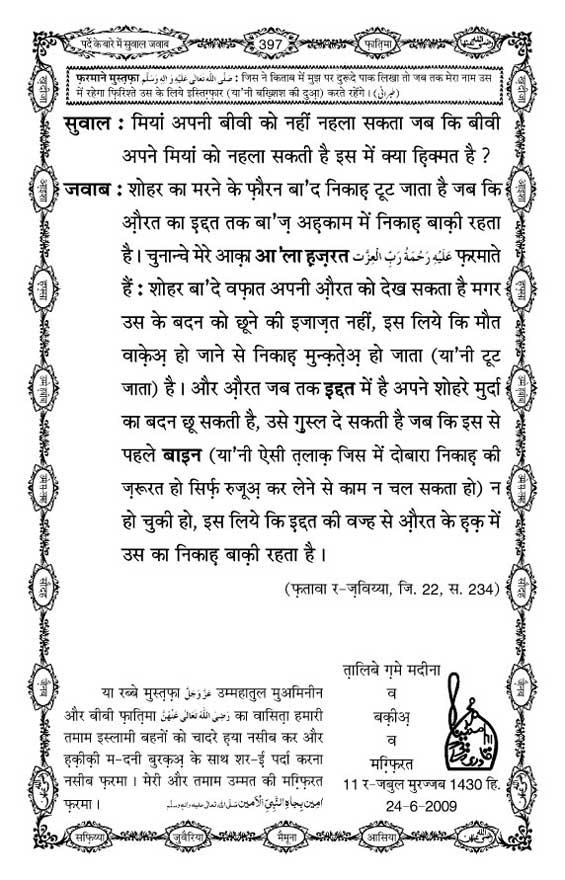 पर्दे के बारे में सुवाल जवाब
397
फ़ातिमा
फ़रमाने मुस्तफ़ा صَلَّى اللهُ تَعَالٰى عَلَيْهِ وَاٰلِهٖ وَسَلَّم : जिस ने किताब में मुझ पर दुरूदे पाक लिखा तो जब तक मेरा नाम उस
में रहेगा फ़िरिश्ते उस के लिये इस्तिग़्फ़ार (या'नी बख़्शिश की दुआ) करते रहेंगे। (طبرانی)
सुवाल : मियां अपनी बीवी को नहीं नहला सकता जब कि बीवी
अपने मियां को नहला सकती है इस में क्या हिक्मत है ?
जवाब : शोहर का मरने के फ़ौरन बा'द निकाह टूट जाता है जब कि
औ़रत का इद्दत तक बा'ज़ अह़काम में निकाह बाक़ी रहता
है। चुनान्चे मेरे आक़ा आ'ला ह़ज़रत عَلَيْهِ رَحْمَةُ رَبِّ الْعِزَّت फ़रमाते
हैं : शोहर बा'दे वफ़ात अपनी औ़रत को देख सकता है मगर
उस के बदन को छूने की इजाज़त नहीं, इस लिये कि मौत
वाक़ेअ़ हो जाने से निकाह मुन्क़त़ेअ़ हो जाता (या'नी टूट
जाता) है। और औ़रत जब तक इद्दत में है अपने शोहरे मुर्दा
का बदन छू सकती है, उसे ग़ुस्ल दे सकती है जब कि इस से
पहले बाइन (या'नी ऐसी त़लाक़ जिस में दोबारा निकाह की
ज़रूरत हो सिर्फ़ रुजूअ़ कर लेने से काम न चल सकता हो) न
हो चुकी हो, इस लिये कि इद्दत की वज्ह से औ़रत के ह़क़ में
उस का निकाह बाक़ी रहता है।
(फ़तावा र-ज़विय्या, जि. 22, स. 234)
या रब्बे मुस्तफ़ा عَزَّوَجَلَّ उम्महातुल मुअमिनीन
और बीबी फ़ातिमा رَضِىَ اللهُ تَعَالٰى عَنْهُنَّ का वासिता हमारी
तमाम इस्लामी बहनों को चादरे ह़या नसीब कर और
ह़क़ीक़ी म-दनी बुरक़अ़ के साथ शर-ई पर्दा करना
नसीब फ़रमा। मेरी और तमाम उम्मत की मग़्फ़िरत
फ़रमा। اٰمِين بِجَاهِ النَّبِيِّ الْاَمِين صَلَّى اللهُ تَعَالٰى عَلَيْهِ وَاٰلِهٖ وَسَلَّم
त़ालिबे ग़मे मदीना
व
बक़ीअ़
व
मग़्फ़िरत
11 र-जबुल मुरज्जब 1430 हि.
24-6-2009
सफ़िय्या
जुवैरिया
मैमूना
आसिया